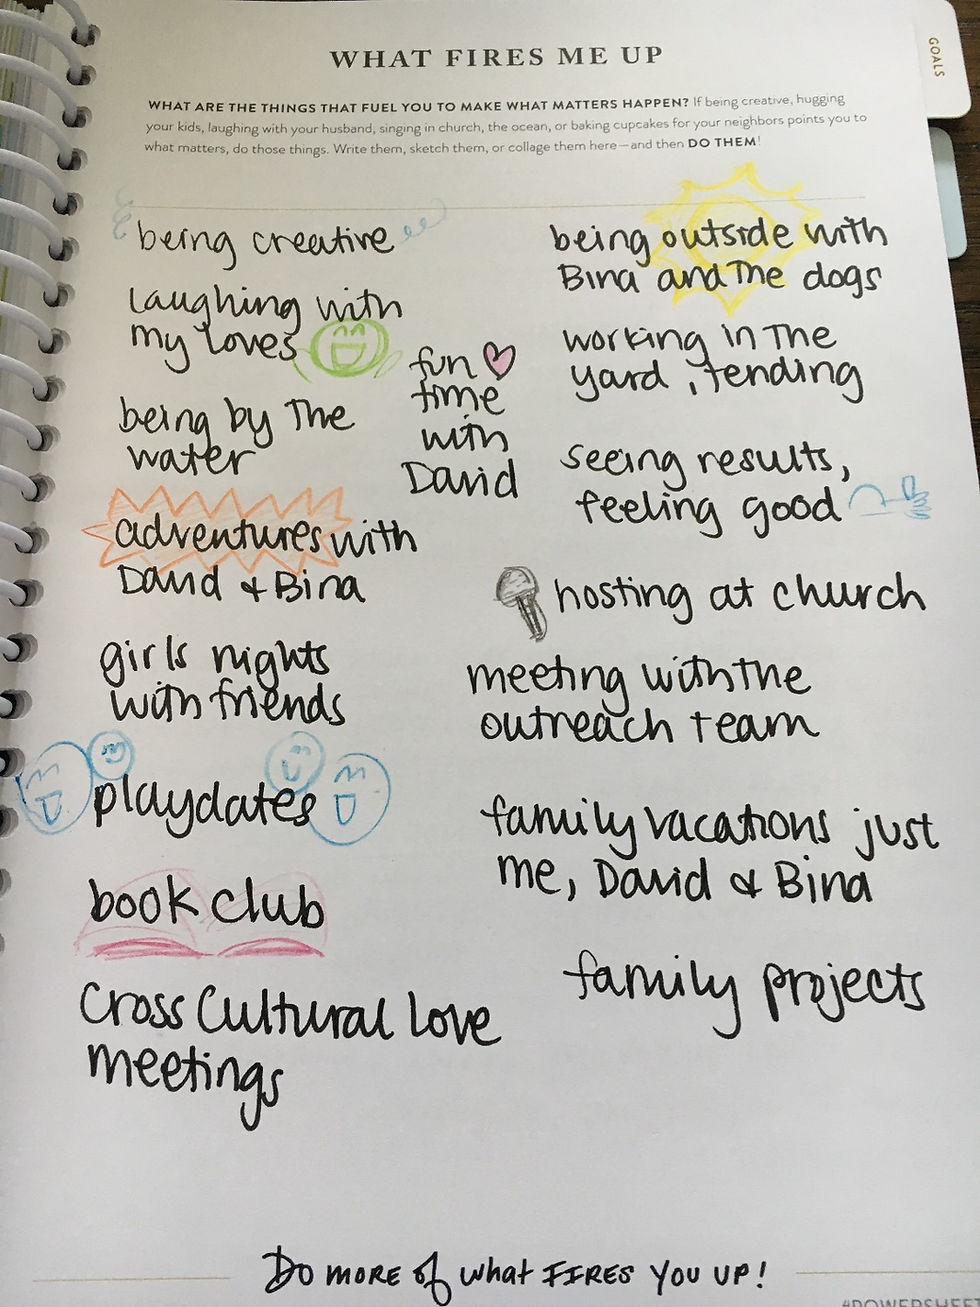 GOALS
WHAT FIRES ME UP
WHAT ARE THE THINGS THAT FUEL YOU TO MAKE WHAT MATTERS HAPPEN? If being creative, hugging
your kids, laughing with your husband, singing in church, the ocean, or baking cupcakes for your neighbors points you to
what matters, do those things. Write them, sketch them, or collage them here—and then DO THEM!
being creative
laughing with
my loves
fun
time
with
David
being by the
water
adventures with
David & Bina
girls nights
with friends
playdates
book club
Cross Cultural Love
meetings
being outside with
Bina and the dogs
working in the
yard, tending
seeing results,
feeling good
hosting at church
meeting with the
outreach team
family vacations just
me, David & Bina
family projects
Do more of what FIRES YOU UP!
#POWERSHEET